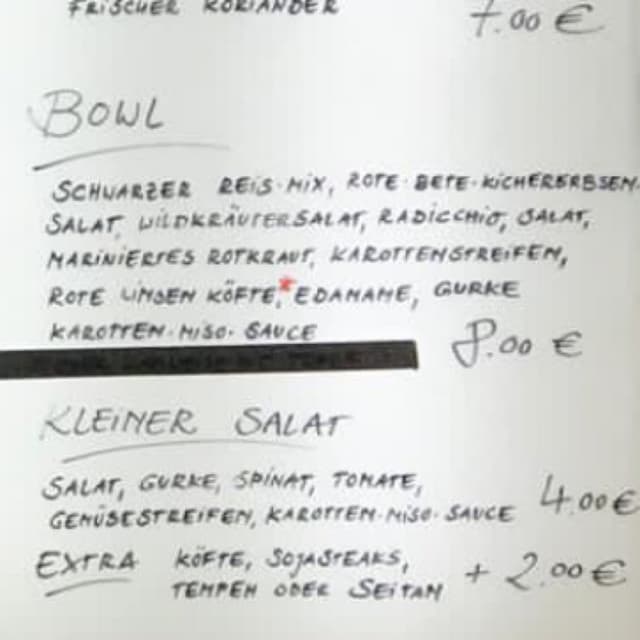 FRISCHER KORIANDER 7.00 €
BOWL
SCHWARZER REIS-MIX, ROTE-BETE-KICHERERBSEN-
SALAT, WILDKRÄUTERSALAT, RADICCHIO, SALAT,
MARINIERTES ROTKRAUT, KAROTTENSTREIFEN,
ROTE LINSEN KÖFTE,* EDAMAME, GURKE
KAROTTEN-MISO-SAUCE 8.00 €
KLEINER SALAT
SALAT, GURKE, SPINAT, TOMATE,
GEMÜSESTREIFEN, KAROTTEN-MISO-SAUCE 4.00 €
EXTRA KÖFTE, SOJASTEAKS, + 2.00 €
TEMPEH ODER SEITAN